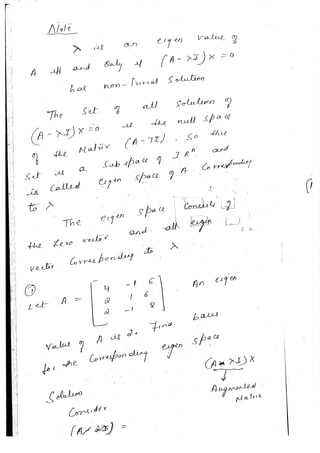 Note
λ is an eigen value of
A iff and only if (A - λI) x = 0
has non-trivial solution
The set of all solution of
(A - λI) x = 0 is the null space
of the Matrix (A - λI). So this
set is a subspace of IRⁿ and
is called eigen space of A corresponding
to λ
The eigen space consists of
the zero vector and all eigen
vector corresponding to λ
① Let A = [4 -1 6
2 1 6
2 -1 8] An eigen
value of A is 2. Find basis
for the corresponding eigen space
(A - λI) X
↓
Augmented
Matrix
Solution
Consider
(A - 2I) =